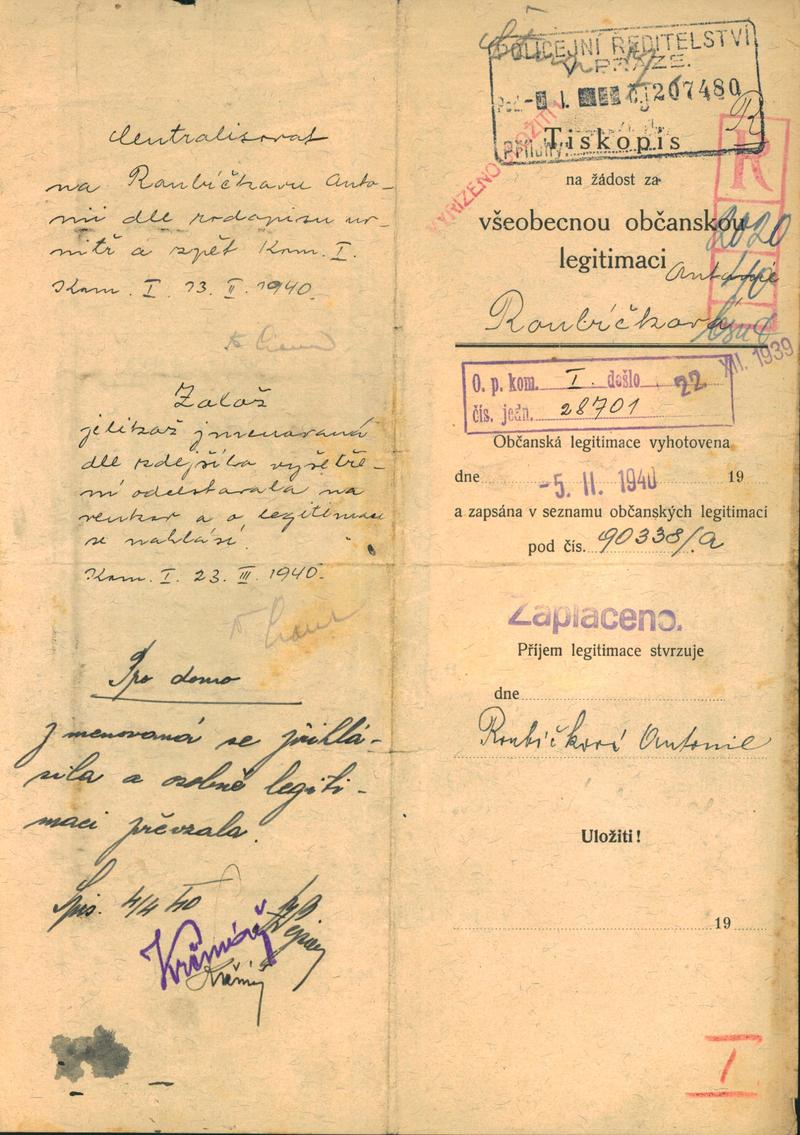 Centralisovat
na Roubíčkovu Anto-
nii dle rodopisu ur-
nitř a zpět Kom. I.
Kom. I. 13. II. 1940.
Založ
jelikož jmenovaná
dle zdejšího vyšetře-
ní odcestovala na
venkov a o legitimaci
se nahlásí.
Kom. I. 23. III. 1940.
Pro domo
Jmenovaná se přihlá-
sila a osobně legiti-
maci převzala.
Spis. 4/4 40
POLICEJNÍ ŘEDITELSTVÍ
V PRAZE.
čj 207480
Přílohy
R
VYŘÍZENO ULOŽITI
Tiskopis
na žádost za
všeobecnou občanskou
legitimaci
R
2020
40
Antonie
Roubíčková
O. p. kom. I. došlo 22 XII. 1939
čís. jedn. 28701
Občanská legitimace vyhotovena
dne -5. II. 1940 19
a zapsána v seznamu občanských legitimací
pod čís. 90338/a
Zaplaceno.
Příjem legitimace stvrzuje
dne
Roubíčková Antonie
Uložiti!
19
I